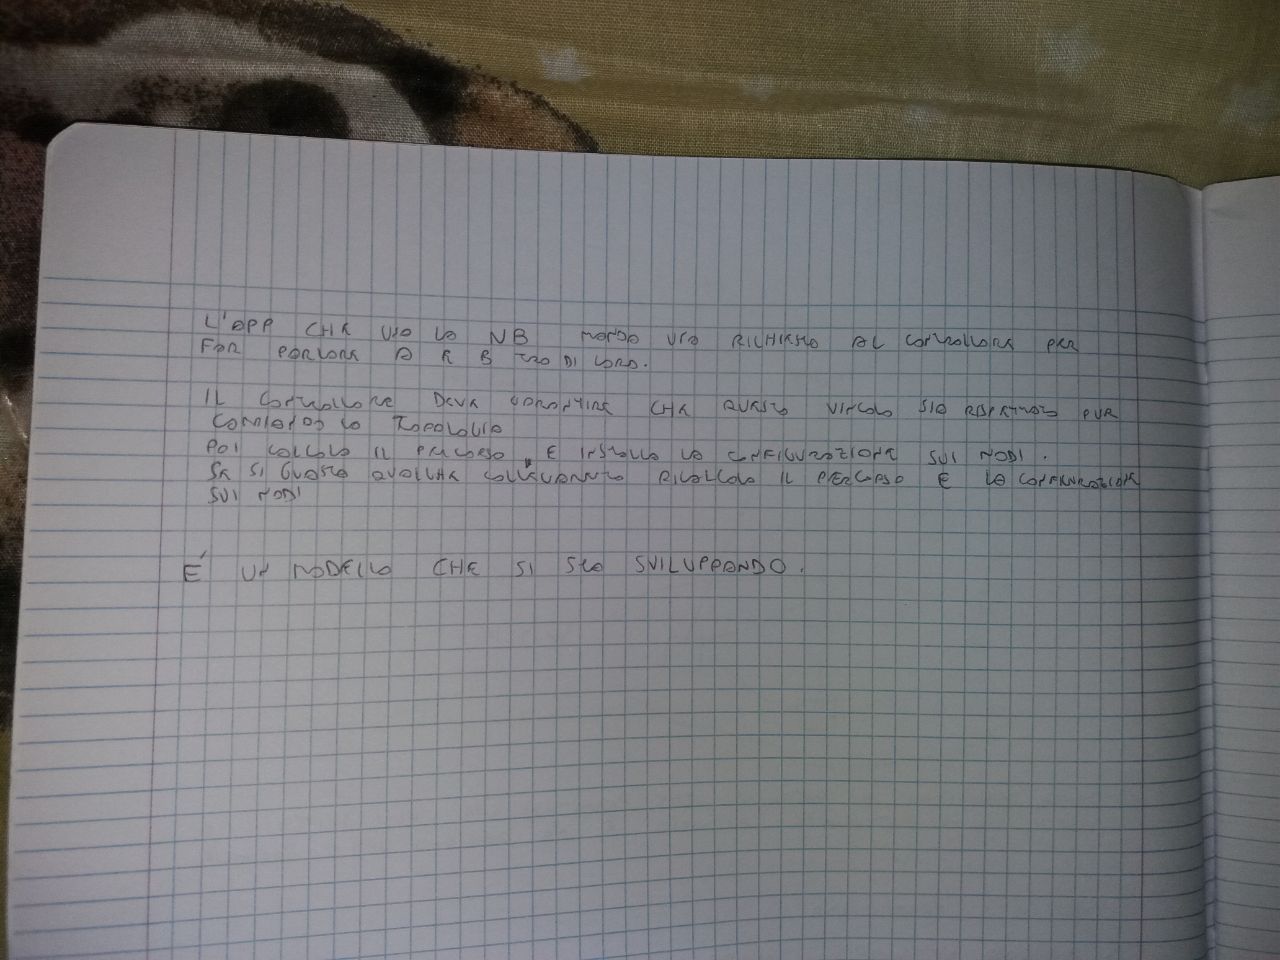 L'APP CHE USA LA NB MANDA UNA RICHIESTA AL CONTROLLORE PER
FAR PARLARE A E B TRA DI LORO.
IL CONTROLLORE DEVE GARANTIRE CHE QUESTO VINCOLO SIA RISPETTATO PUR
LA TOPOLOGIA
POI CALCOLA IL PERCORSO E INSTALLA LA CONFIGURAZIONE SUI NODI.
SE SI GUASTA QUALCHE COLLEGAMENTO RICALCOLA IL PERCORSO E LA CONFIGURAZIONE
SUI NODI
É UN MODELLO CHE SI STA SVILUPPANDO.